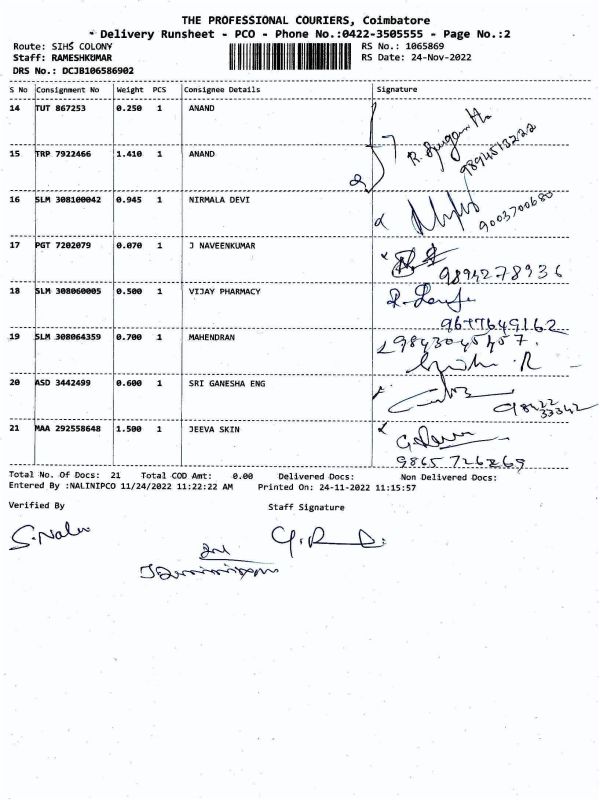 THE PROFESSIONAL COURIERS, Coimbatore
Delivery Runsheet - PCO - Phone No.:0422-3505555 - Page No.:2
Route: SIHS COLONY RS No.: 1065869
Staff: RAMESHKUMAR RS Date: 24-Nov-2022
DRS No.: DCJB106586902
S No Consignment No Weight PCS Consignee Details Signature
14 TUT 867253 0.250 1 ANAND
15 TRP 7922466 1.410 1 ANAND 9894513222
16 SLM 308100042 0.945 1 NIRMALA DEVI 9003700680
17 PGT 7202079 0.070 1 J NAVEENKUMAR 9894278936
18 SLM 308060005 0.500 1 VIJAY PHARMACY 9677649162
19 SLM 308064359 0.700 1 MAHENDRAN
20 ASD 3442499 0.600 1 SRI GANESHA ENG 98422 33342
21 MAA 292558648 1.500 1 JEEVA SKIN 9865726269
Total No. Of Docs: 21 Total COD Amt: 0.00 Delivered Docs: Non Delivered Docs:
Entered By :NALINIPCO 11/24/2022 11:22:22 AM Printed On: 24-11-2022 11:15:57
Verified By Staff Signature